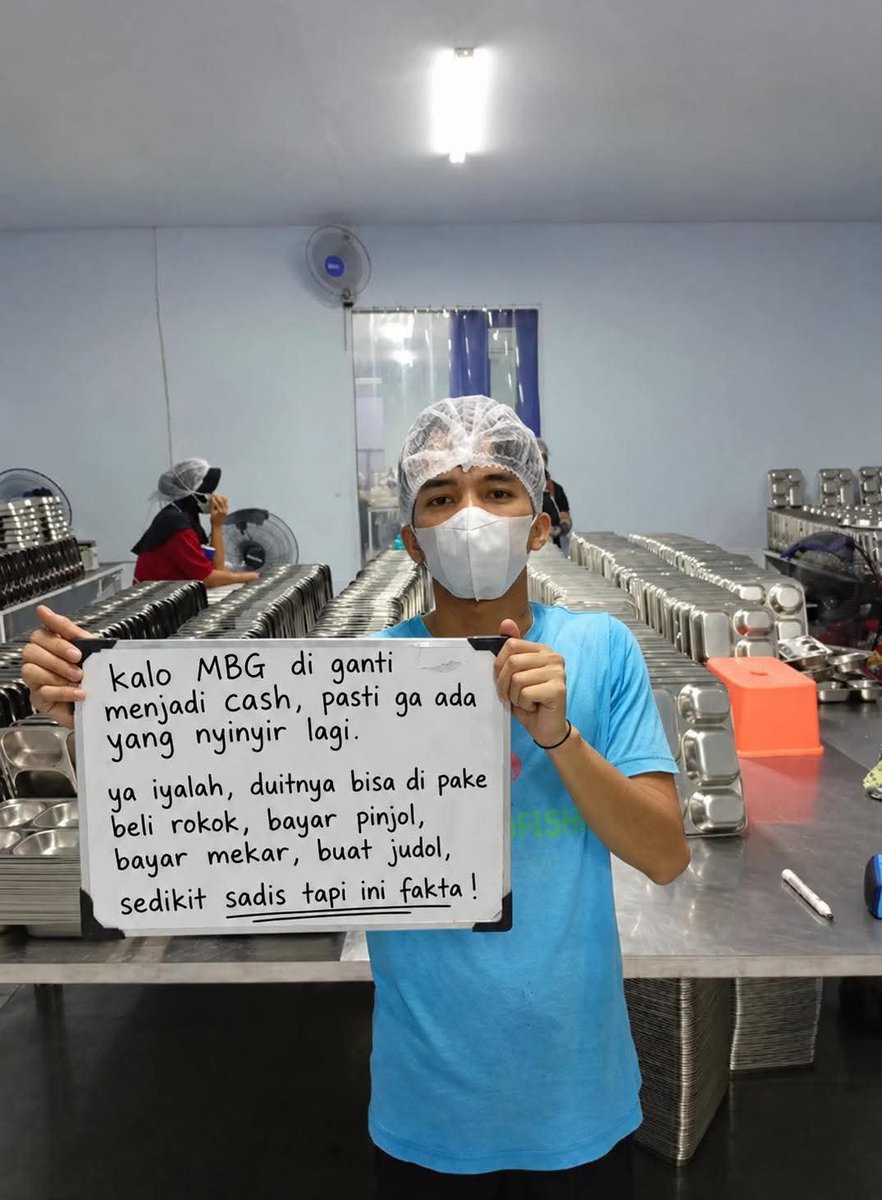 kalo MBG di ganti
menjadi cash, pasti ga ada
yang nyinyir lagi.
ya iyalah, duitnya bisa di pake
beli rokok, bayar pinjol,
bayar mekar, buat judol,
sedikit sadis tapi ini fakta!